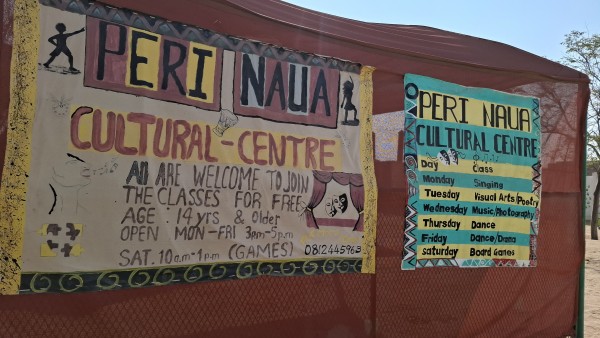 PERI NAUA
CULTURAL-CENTRE
All ARE WELCOME TO JOIN
THE CLASSES FOR FREE
AGE: 14 yrs & older
OPEN MON-FRI 3pm-5pm
SAT. 10 a.m-1pm (GAMES) 0812445963
PERI NAUA
CULTURAL CENTRE
Day Class
Monday Singing
Tuesday Visual Arts/Poetry
Wednesday Music/Photography
Thursday Dance
Friday Dance/Drama
saturday Board Games